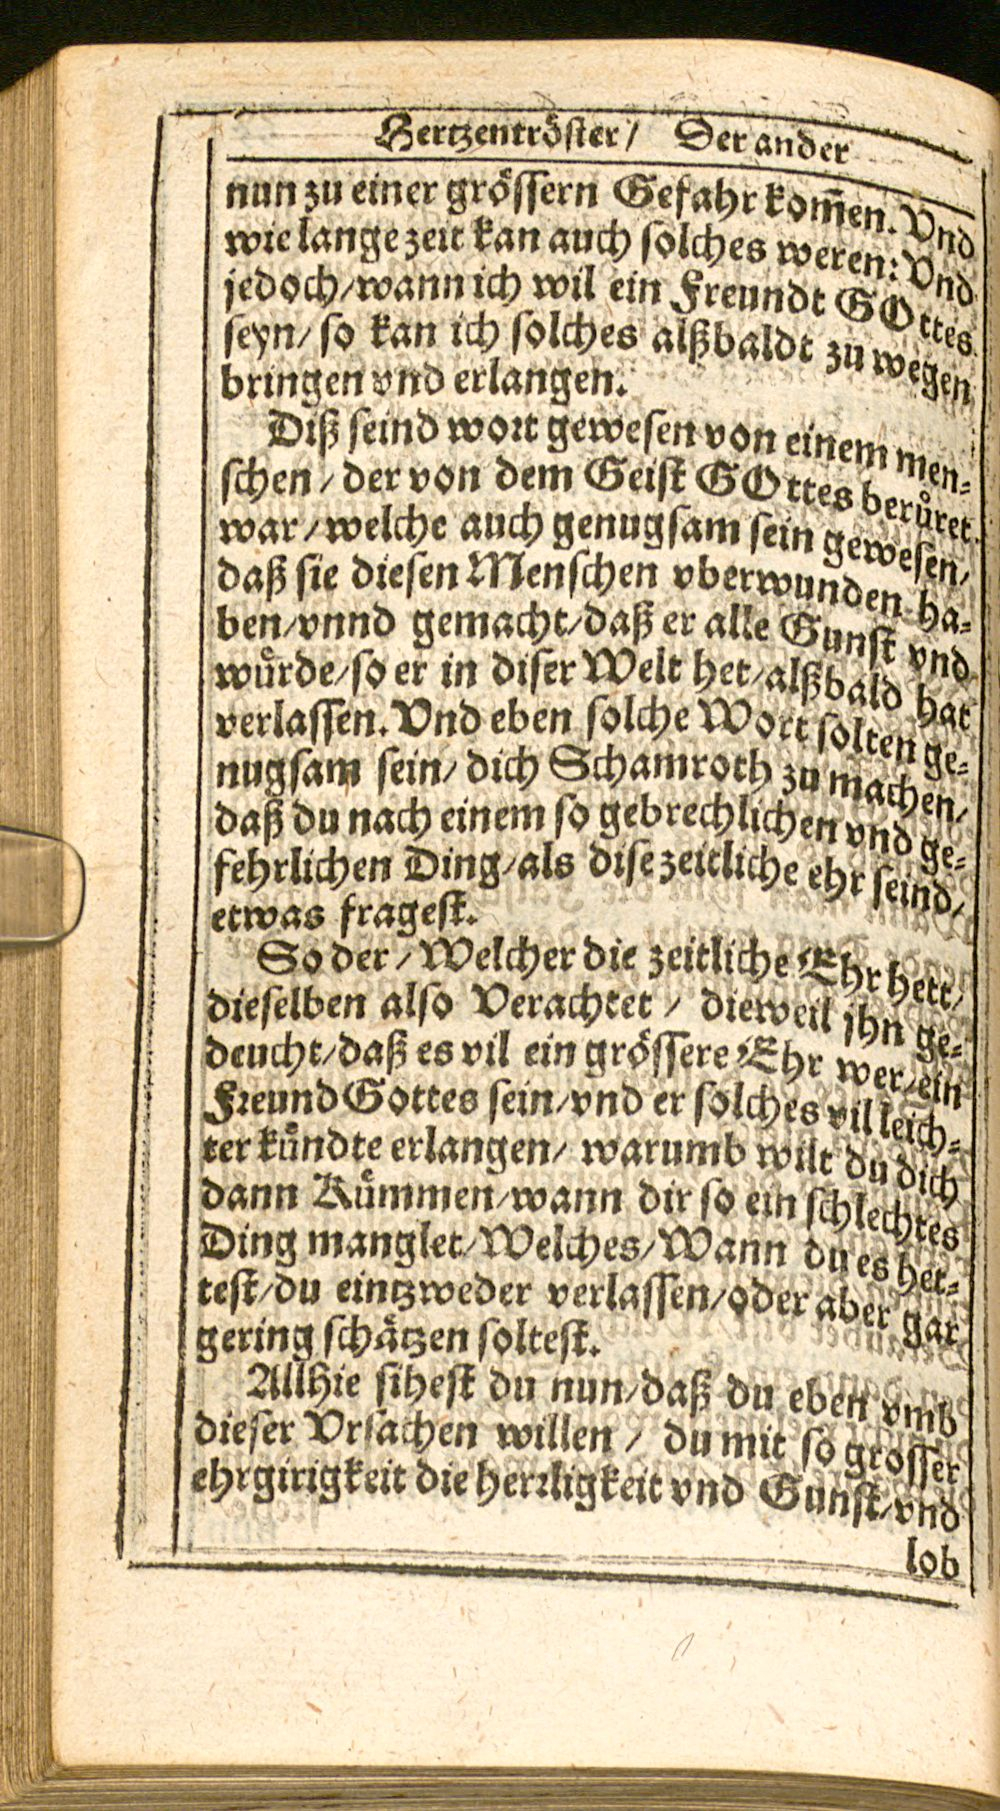 Hertzentröster/ Der ander
nun zu einer grössern Gefahr kom̃en. Vnd
wie lange zeit kan auch solches weren: Vnd
jedoch/wann ich wil ein Freundt GOttes
seyn/ so kan ich solches alßbaldt zu wegen
bringen vnd erlangen.
Diß seind wort gewesen von einem men-
schen/ der von dem Geist GOttes berůret
war/welche auch genugsam sein gewesen/
daß sie diesen Menschen vberwunden ha-
ben/vnnd gemacht/daß er alle Gunst vnd
wůrde/so er in diser Welt het/alßbald hat
verlassen. Vnd eben solche Wort solten ge-
nugsam sein/ dich Schamroth zu machen/
daß du nach einem so gebrechlichen vnd ge-
fehrlichen Ding/als dise zeitliche ehr seind/
etwas fragest.
So der/Welcher die zeitliche Ehr hett/
dieselben also Verachtet/ dieweil jhn ge-
deucht/daß es vil ein grössere Ehr wer/ein
Freund Gottes sein/vnd er solches vil leich-
ter kůndte erlangen/ warumb wilt du dich
dann Kůmmen/wann dir so ein schlechtes
Ding manglet/Welches/Wann du es het-
test/du eintzweder verlassen/oder aber gar
gering schätzen soltest.
Allhie sihest du nun/daß du eben vmb
dieser Vrsachen willen/ du mit so grosser
ehrgirigkeit die herrligkeit vnd Gunst/vnd
lob